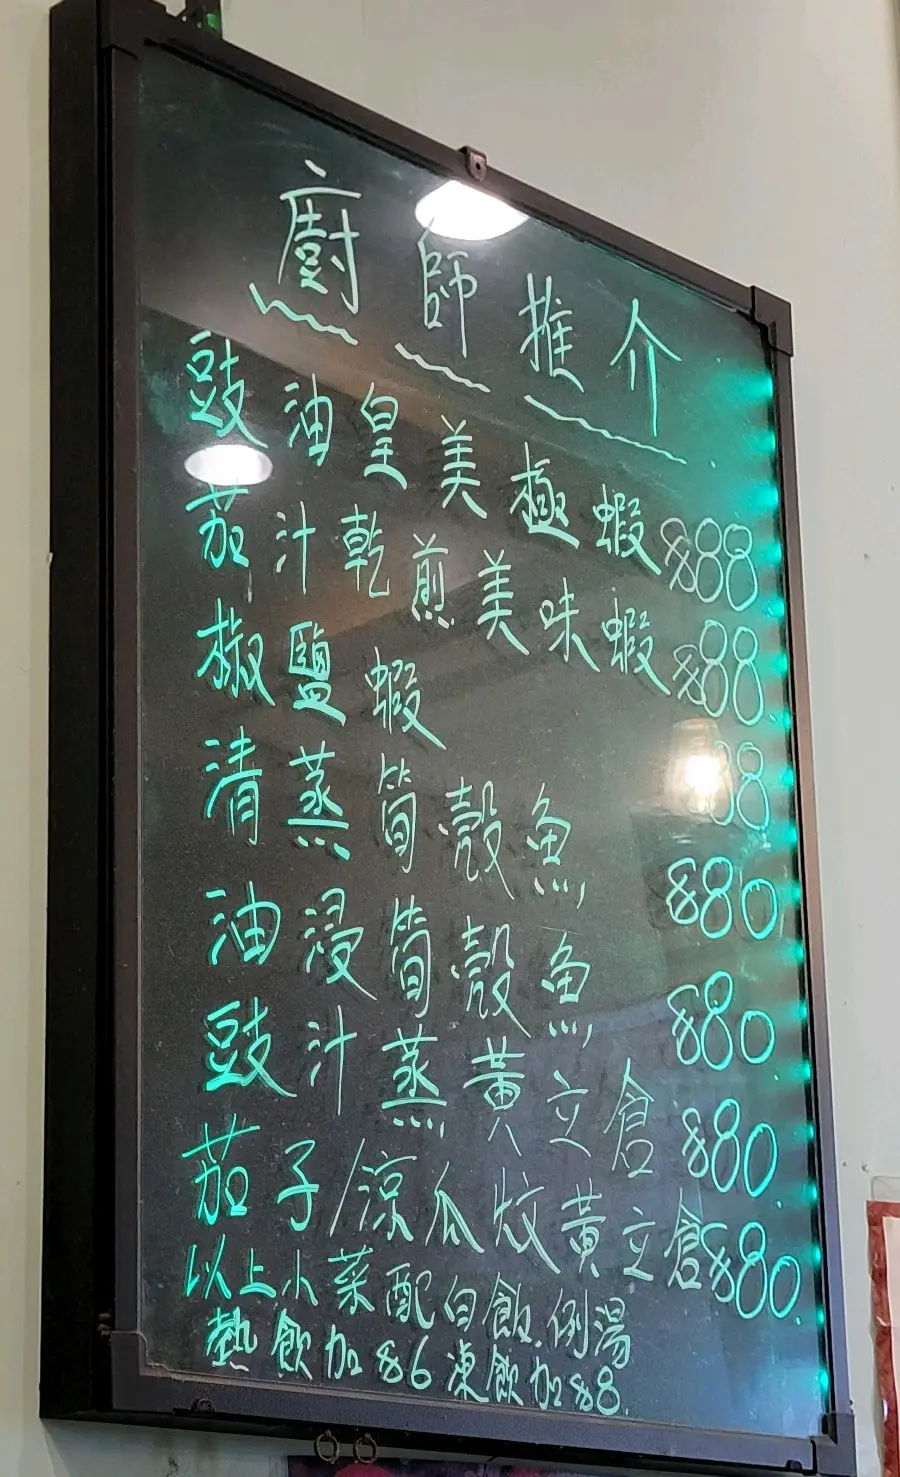 廚師推介
豉油皇美極蝦 $88
茄汁乾煎美味蝦 $88
椒鹽蝦 88
清蒸筍殼魚 $80
油浸筍殼魚 $80
豉汁蒸黃立倉 $80
茄子/涼瓜炆黃立倉 $80
以上小菜配白飯.例湯
熱飲加$6 凍飲加$8.